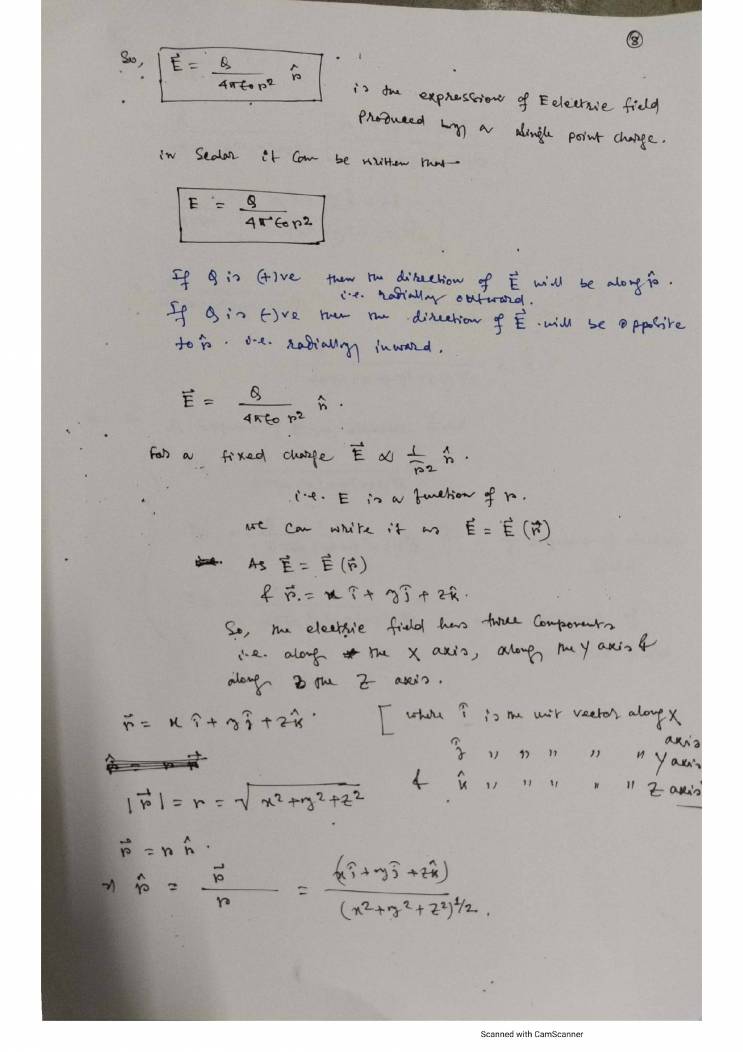 ⑧
So, E⃗ = Q / 4πε₀r² r̂
is the expression of Eelectric field
Produced by a single point charge.
in Scalar it can be written that—
E = Q / 4πε₀r²
If Q is (+)ve then the direction of E⃗ will be along r̂.
i.e. radially outward.
If Q is (-)ve then the direction of E⃗ will be opposite
to r̂. i.e. radially inward.
E⃗ = Q / 4πε₀r² r̂.
For a fixed charge E⃗ ∝ 1/r² r̂.
i.e. E is a function of r.
we can write it as E⃗ = E⃗(r⃗)
As E⃗ = E⃗(r⃗)
& r⃗ = xî + yĵ + zk̂.
So, the electric field has three components
i.e. along the X axis, along the Y axis &
along the Z axis.
r⃗ = xî + yĵ + zk̂. [where î is the unit vector along X
axis
ĵ ,, ,, ,, ,, " Y axis
& k̂ ,, ,, ,, " " Z axis
|r⃗| = r = √x²+y²+z²
r⃗ = r r̂.
⇒ r̂ = r⃗ / r = (xî + yĵ + zk̂) / (x²+y²+z²)^1/2.
Scanned with CamScanner